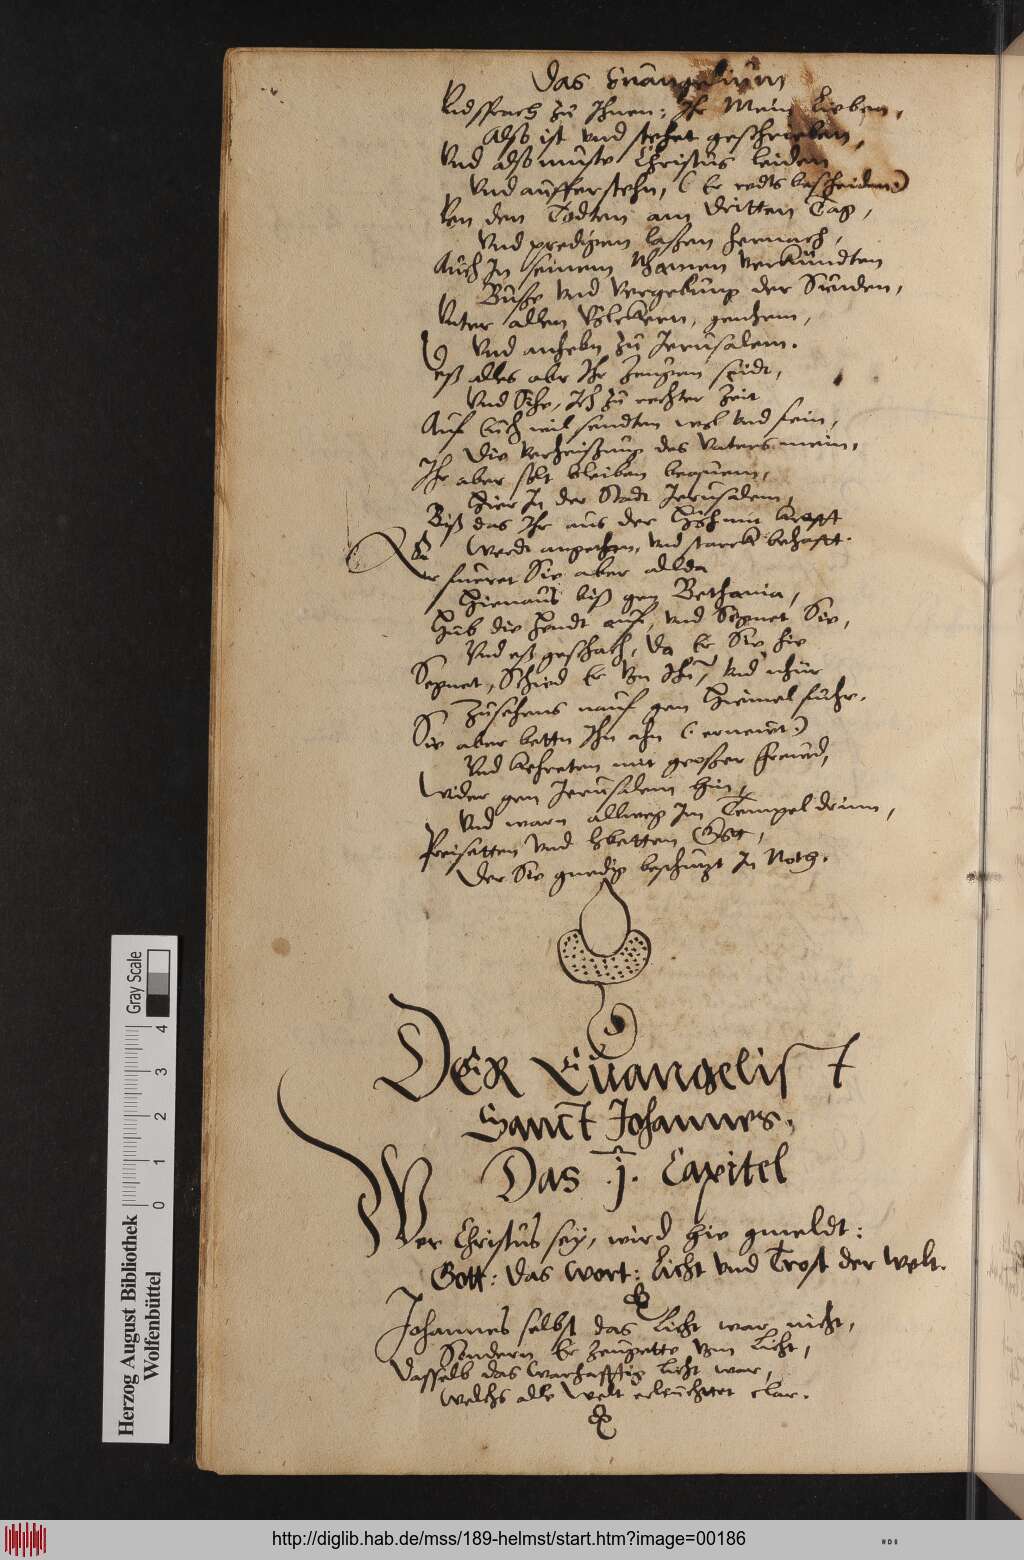 Das Euangelium
Vnd sprach zu Ihnen: Ihr Mein Lieben,
Also ist vnd stehet geschrieben,
Vnd also muste Christus leiden
Vnd aufferstehn, (Er redts bescheiden:)
Von den Todten am dritten Tag,
Vnd predigen laßen hernach,
Auch In seinem Nhamen verkündten
Buße vnd vergebung der Sünden,
Vnter allen Völckern, genhem,
Vnd anhebn zu Jerusalem.
Deß alles abr Ihr Zeugen seidt,
Vnd Sihe, Ich zu rechter Zeit
Auf Euch wil sendten wol vnd fein,
Die verheißung des Vaters mein,
Ihr aber solt bleiben bequem,
Hier In der Stadt Jerusalem,
Biß das Ihr aus der Höh mit krafft
Werdt angethan, vnd starck behafft.
Er fueret Sie aber allda
Hienaus biß gen Bethania,
Hub die Hendt auf, vnd Segnet Sie,
Vnd eß geschach, da Er Sie hie
Segnet, Schied Er von Ihn, vnd nhur
Zusehens nauf gen Hiemel fuhr.
Sie aber bettn Ihn ahn (: erneuet:)
Vnd kehreten mit großer freud,
Wider gen Jerusalem hin,
Vnd warn allweg Im Tempel drinn,
Preisetten vnd lobetten Gott,
Der Sie gnedig beschutzt In Noth.
DER Euangelist
Sanct Johannes.
Das .j. Capitel
Wer Christus sey, wird hie gmeldt:
Gott: das Wort: Licht vnd Trost der Welt.
Johannes selbst das Licht war nicht,
Sondern Er Zeugette vom Licht,
Dasselb das warhafftig licht war,
Welchs alle Welt erleuchtet clar.
Gray Scale
0 1 2 3 4
Herzog August Bibliothek
Wolfenbüttel
http://diglib.hab.de/mss/189-helmst/start.htm?image=00186